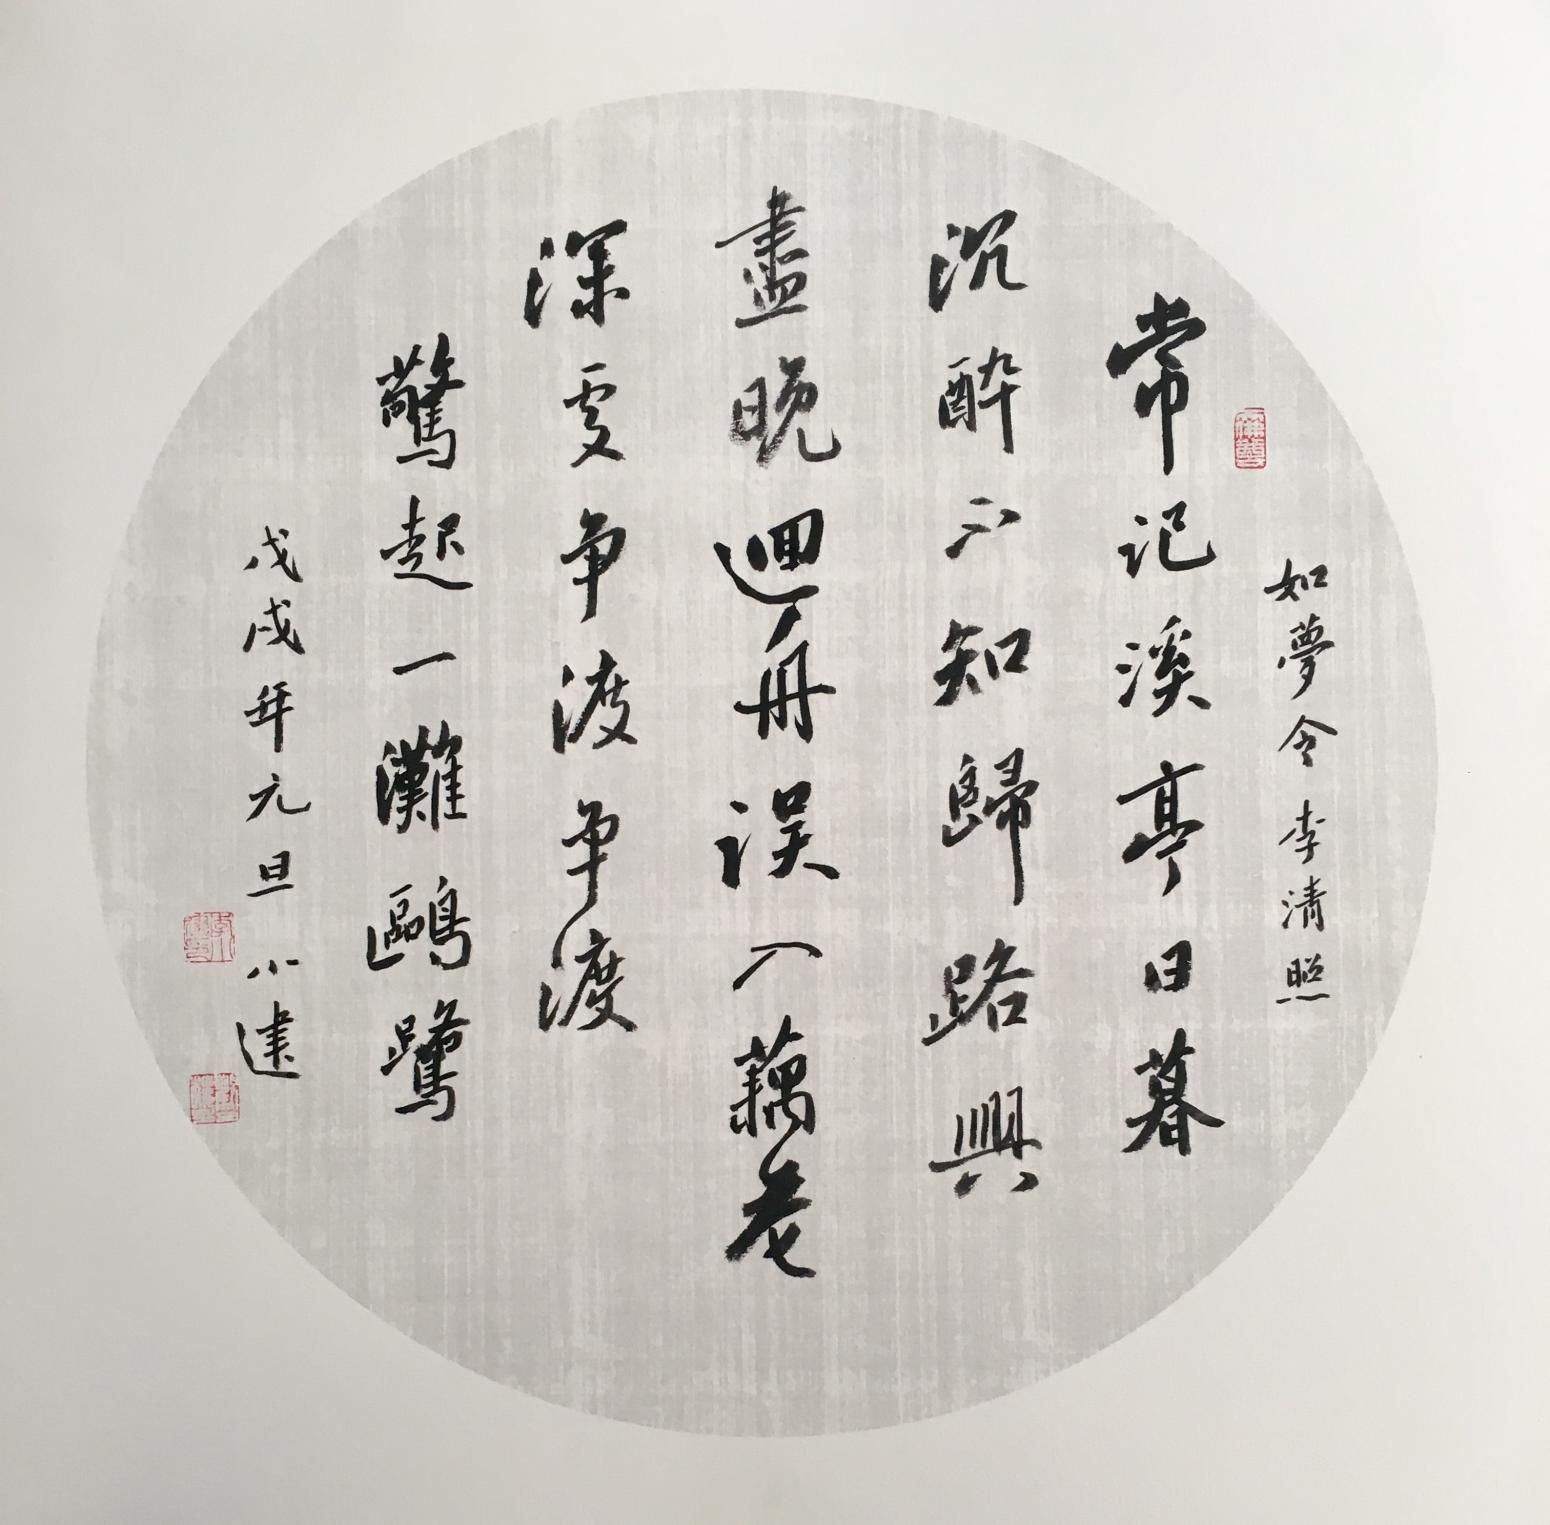 如夢令 李清照
常記溪亭日暮
沉醉不知歸路興
盡晚迴舟误入藕花
深處争渡争渡
驚起一灘鷗鷺
戊戌年元旦 小建